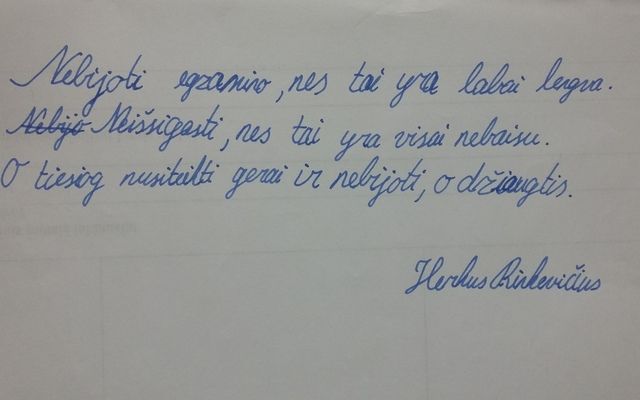 Nebijoti egzamino, nes tai yra labai lengva.
Nebijo Neišsigasti, nes tai yra visai nebaisu.
O tiesiog nusiteikti gerai ir nebijoti, o džiaugtis.
Herkus Rinkevičius